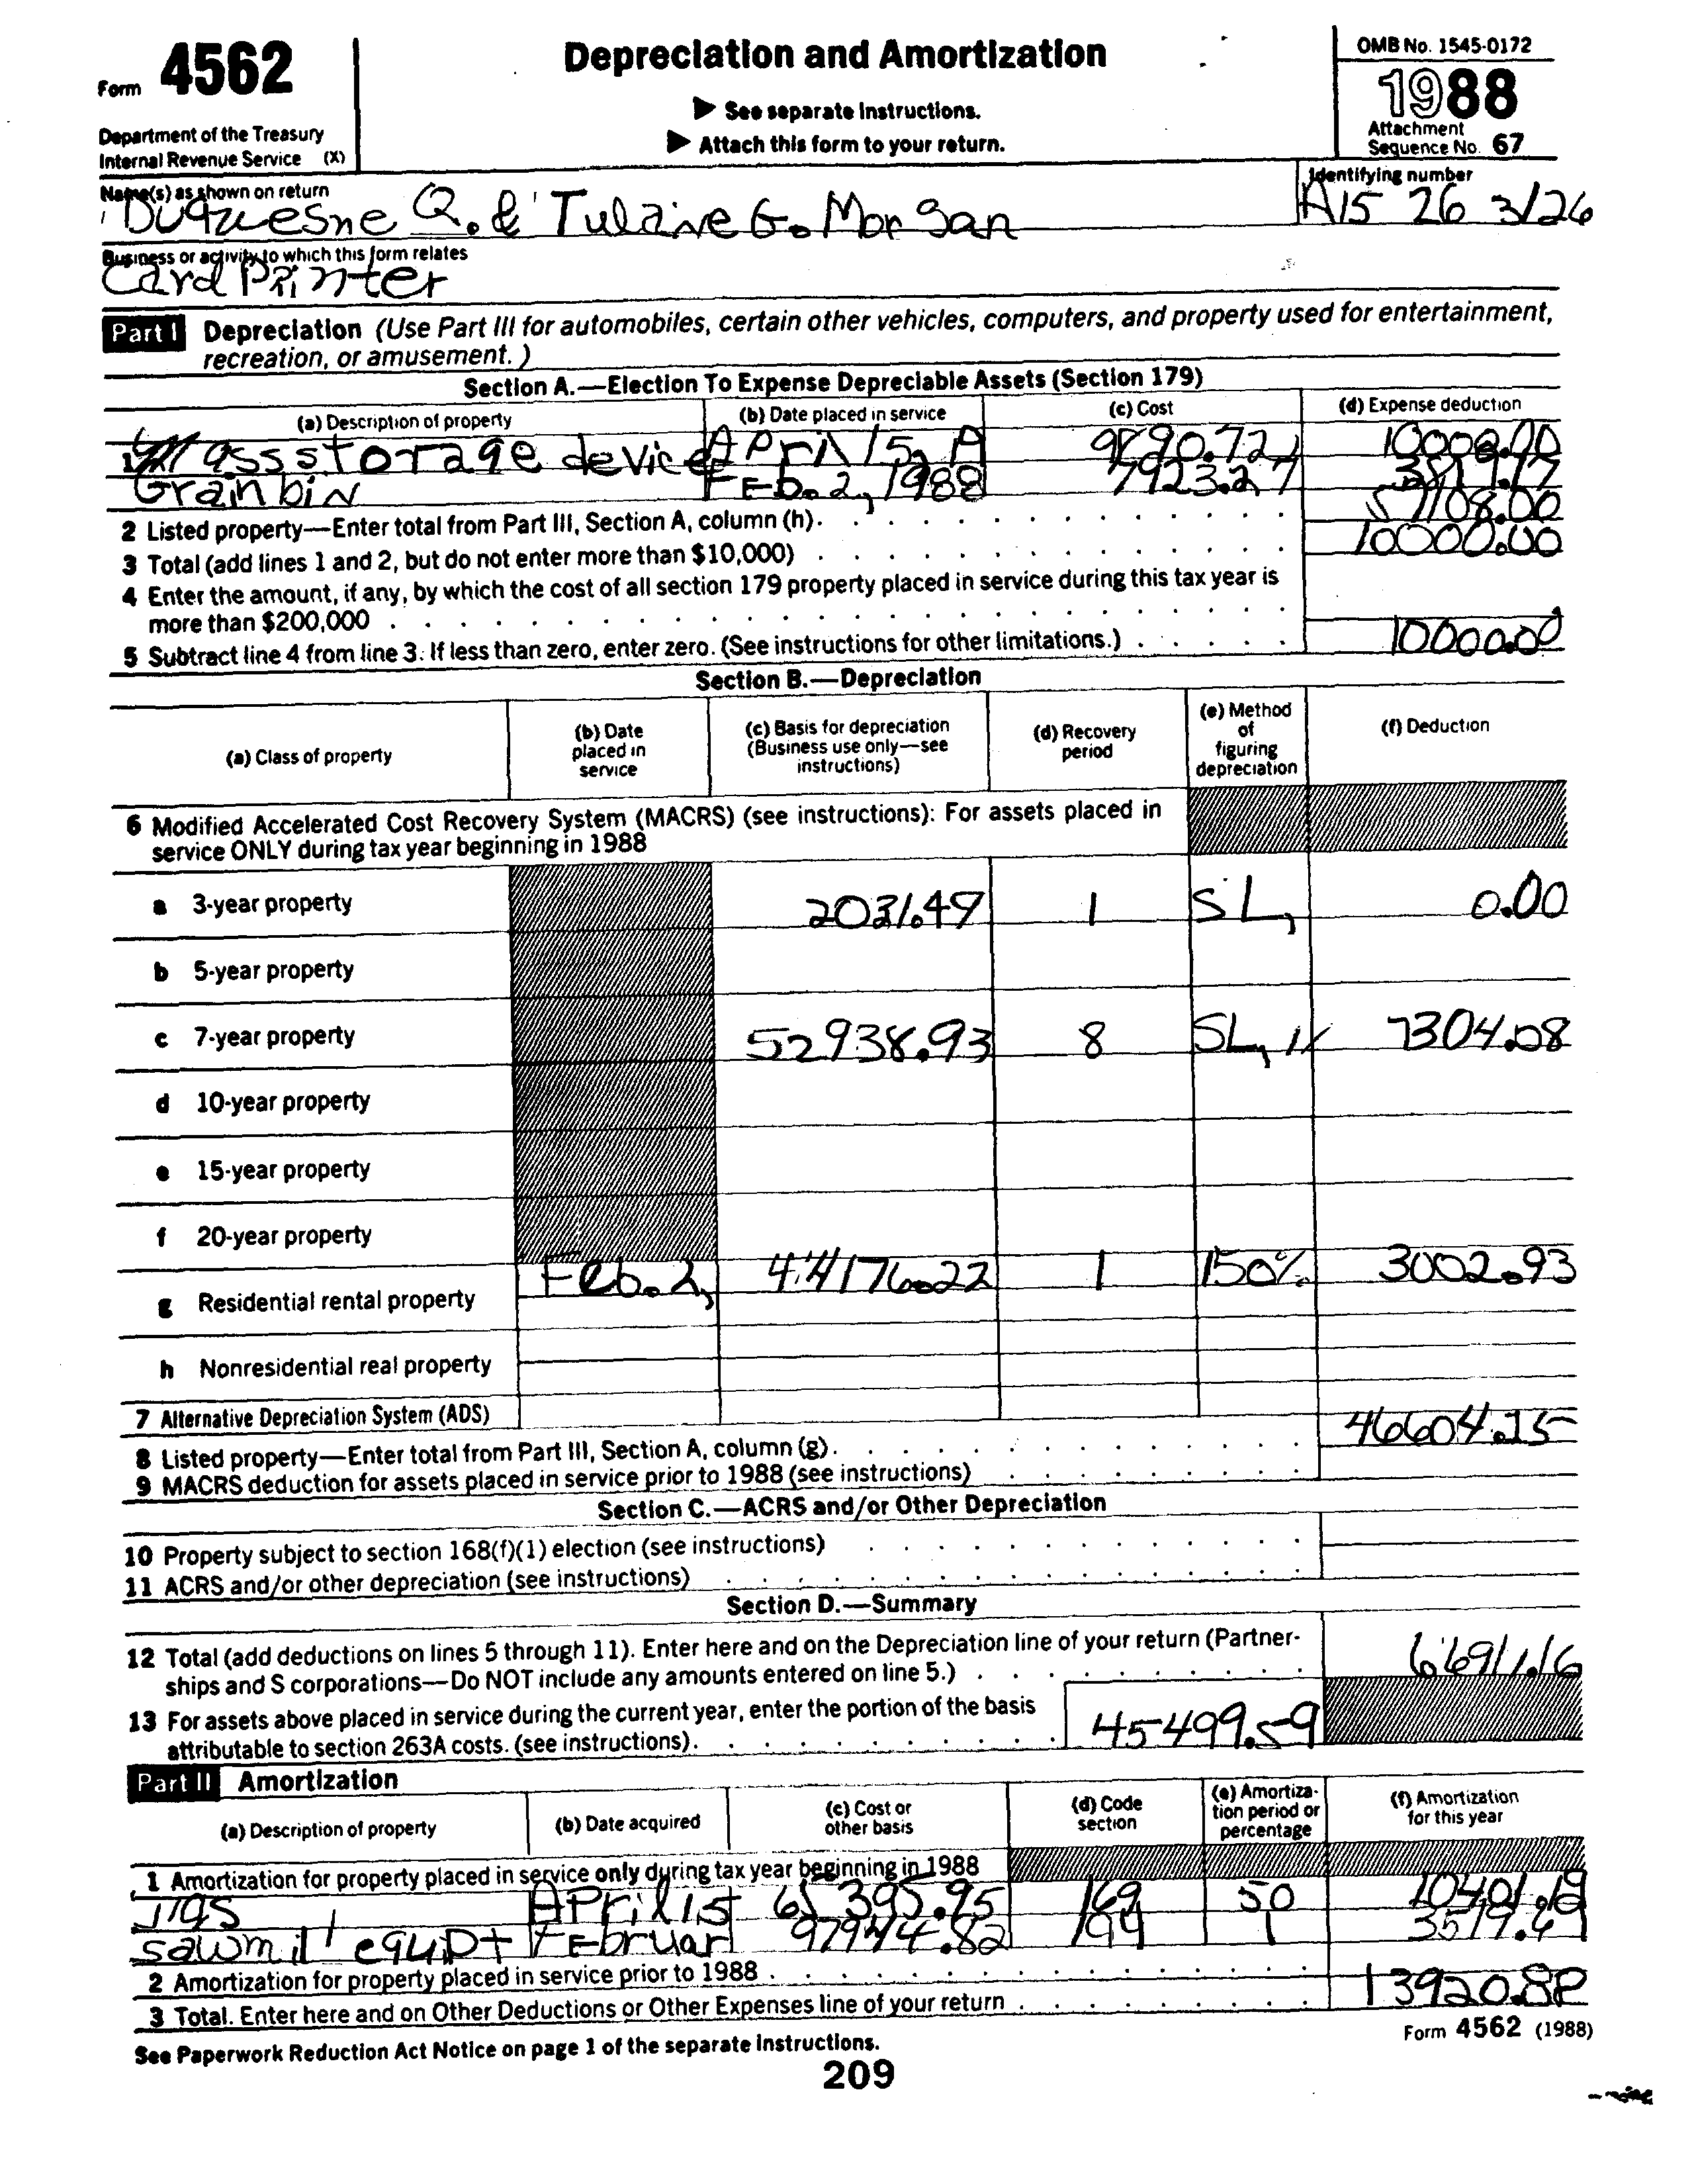 Form 4562
Depreciation and Amortization
OMB No. 1545-0172
1988
► See separate Instructions.
► Attach this form to your return.
Department of the Treasury
Internal Revenue Service (X)
Attachment
Sequence No. 67
Name(s) as shown on return
Identifying number
Duquesne Q. & Tulane G. Morgan
A15 26 3126
Business or activity to which this form relates
Card Printer
Part I Depreciation (Use Part III for automobiles, certain other vehicles, computers, and property used for entertainment,
recreation, or amusement.)
Section A.—Election To Expense Depreciable Assets (Section 179)
(a) Description of property (b) Date placed in service (c) Cost (d) Expense deduction
1 Mass storage device April 5, A 9890.72 10000.00
Grain bin Feb. 2, 1988 7923.27
2 Listed property—Enter total from Part III, Section A, column (h). 57108.00
3 Total (add lines 1 and 2, but do not enter more than $10,000) 10000.00
4 Enter the amount, if any, by which the cost of all section 179 property placed in service during this tax year is
more than $200,000
5 Subtract line 4 from line 3. If less than zero, enter zero. (See instructions for other limitations.) 10000.00
Section B.—Depreciation
(a) Class of property (b) Date placed in service (c) Basis for depreciation (Business use only—see instructions) (d) Recovery period (e) Method of figuring depreciation (f) Deduction
6 Modified Accelerated Cost Recovery System (MACRS) (see instructions): For assets placed in
service ONLY during tax year beginning in 1988
a 3-year property 2031.49 1 SL, 0.00
b 5-year property
c 7-year property 52938.93 8 SL, 7304.08
d 10-year property
e 15-year property
f 20-year property
g Residential rental property Feb. 2, 44176.22 1 150% 3002.93
h Nonresidential real property
7 Alternative Depreciation System (ADS)
8 Listed property—Enter total from Part III, Section A, column (g). 46604.15
9 MACRS deduction for assets placed in service prior to 1988 (see instructions)
Section C.—ACRS and/or Other Depreciation
10 Property subject to section 168(f)(1) election (see instructions)
11 ACRS and/or other depreciation (see instructions)
Section D.—Summary
12 Total (add deductions on lines 5 through 11). Enter here and on the Depreciation line of your return (Partner-
ships and S corporations—Do NOT include any amounts entered on line 5.) 66911.16
13 For assets above placed in service during the current year, enter the portion of the basis
attributable to section 263A costs. (see instructions). 45499.59
Part II Amortization
(a) Description of property (b) Date acquired (c) Cost or other basis (d) Code section (e) Amortization period or percentage (f) Amortization for this year
1 Amortization for property placed in service only during tax year beginning in 1988
Jigs April 15 61395.95 169 50 10401.19
sawmill equipt Februar 97944.82 194 1 3519.69
2 Amortization for property placed in service prior to 1988
3 Total. Enter here and on Other Deductions or Other Expenses line of your return 13920.88
See Paperwork Reduction Act Notice on page 1 of the separate Instructions.
Form 4562 (1988)
209